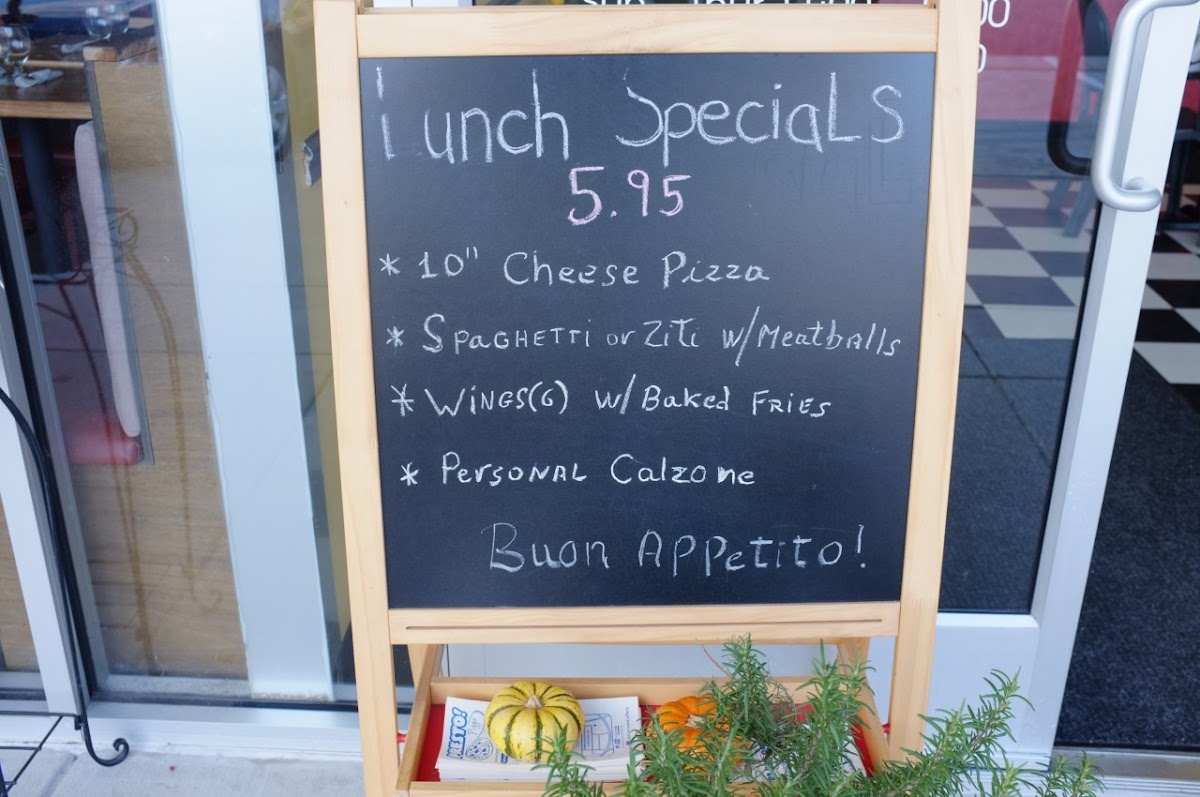 Lunch SpeciaLS
5.95
* 10" Cheese Pizza
* SPaGHETTi or ZiTi w/Meatballs
* WiNGS(6) w/Baked FRiES
* PersoNAL Calzone
Buon APPetito!